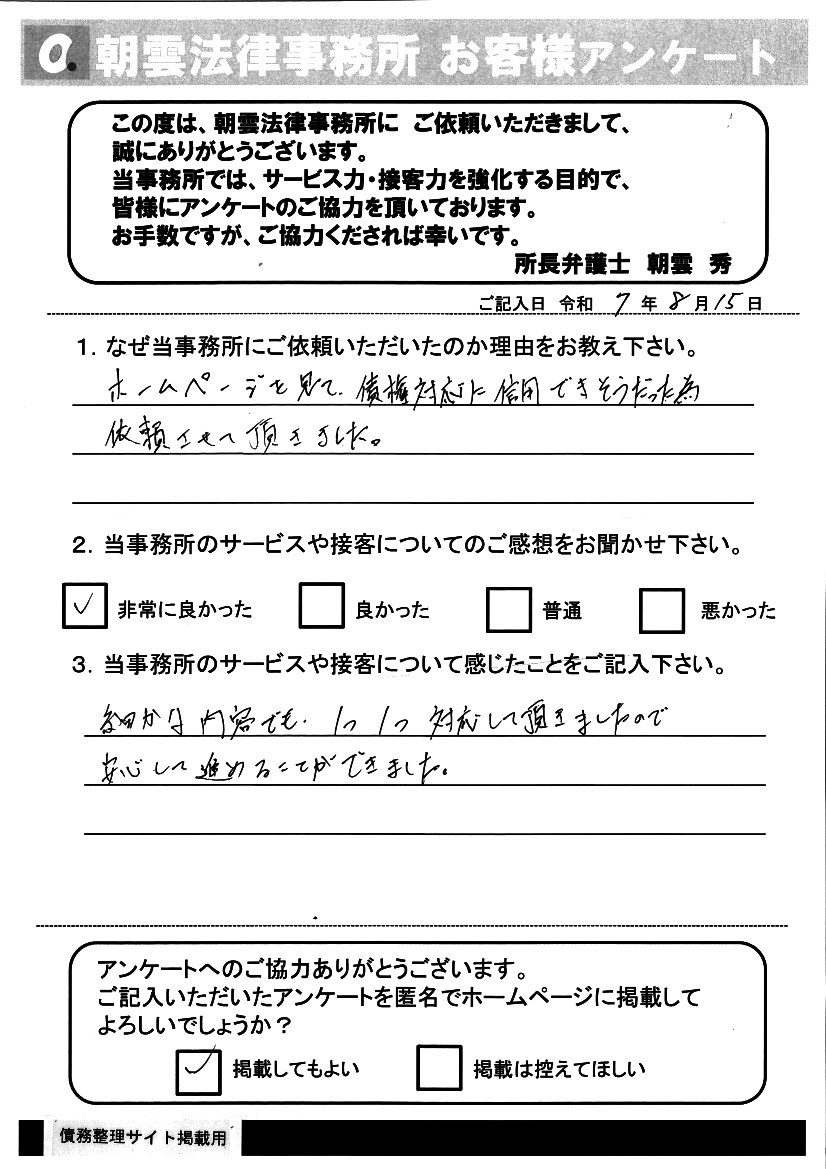 a. 朝雲法律事務所 お客様アンケート
この度は、朝雲法律事務所に ご依頼いただきまして、
誠にありがとうございます。
当事務所では、サービス力・接客力を強化する目的で、
皆様にアンケートのご協力を頂いております。
お手数ですが、ご協力くだされば幸いです。
所長弁護士 朝雲 秀
ご記入日 令和 7 年 8 月 15 日
1. なぜ当事務所にご依頼いただいたのか理由をお教え下さい。
ホームページを見て、債権対応に信用できそうだった為
依頼させて頂きました。
2. 当事務所のサービスや接客についてのご感想をお聞かせ下さい。
✓ 非常に良かった 良かった 普通 悪かった
3. 当事務所のサービスや接客について感じたことをご記入下さい。
細かな内容でも、1つ1つ対応して頂きましたので
安心して進めることができました。
アンケートへのご協力ありがとうございます。
ご記入いただいたアンケートを匿名でホームページに掲載して
よろしいでしょうか?
✓ 掲載してもよい 掲載は控えてほしい
債務整理サイト掲載用